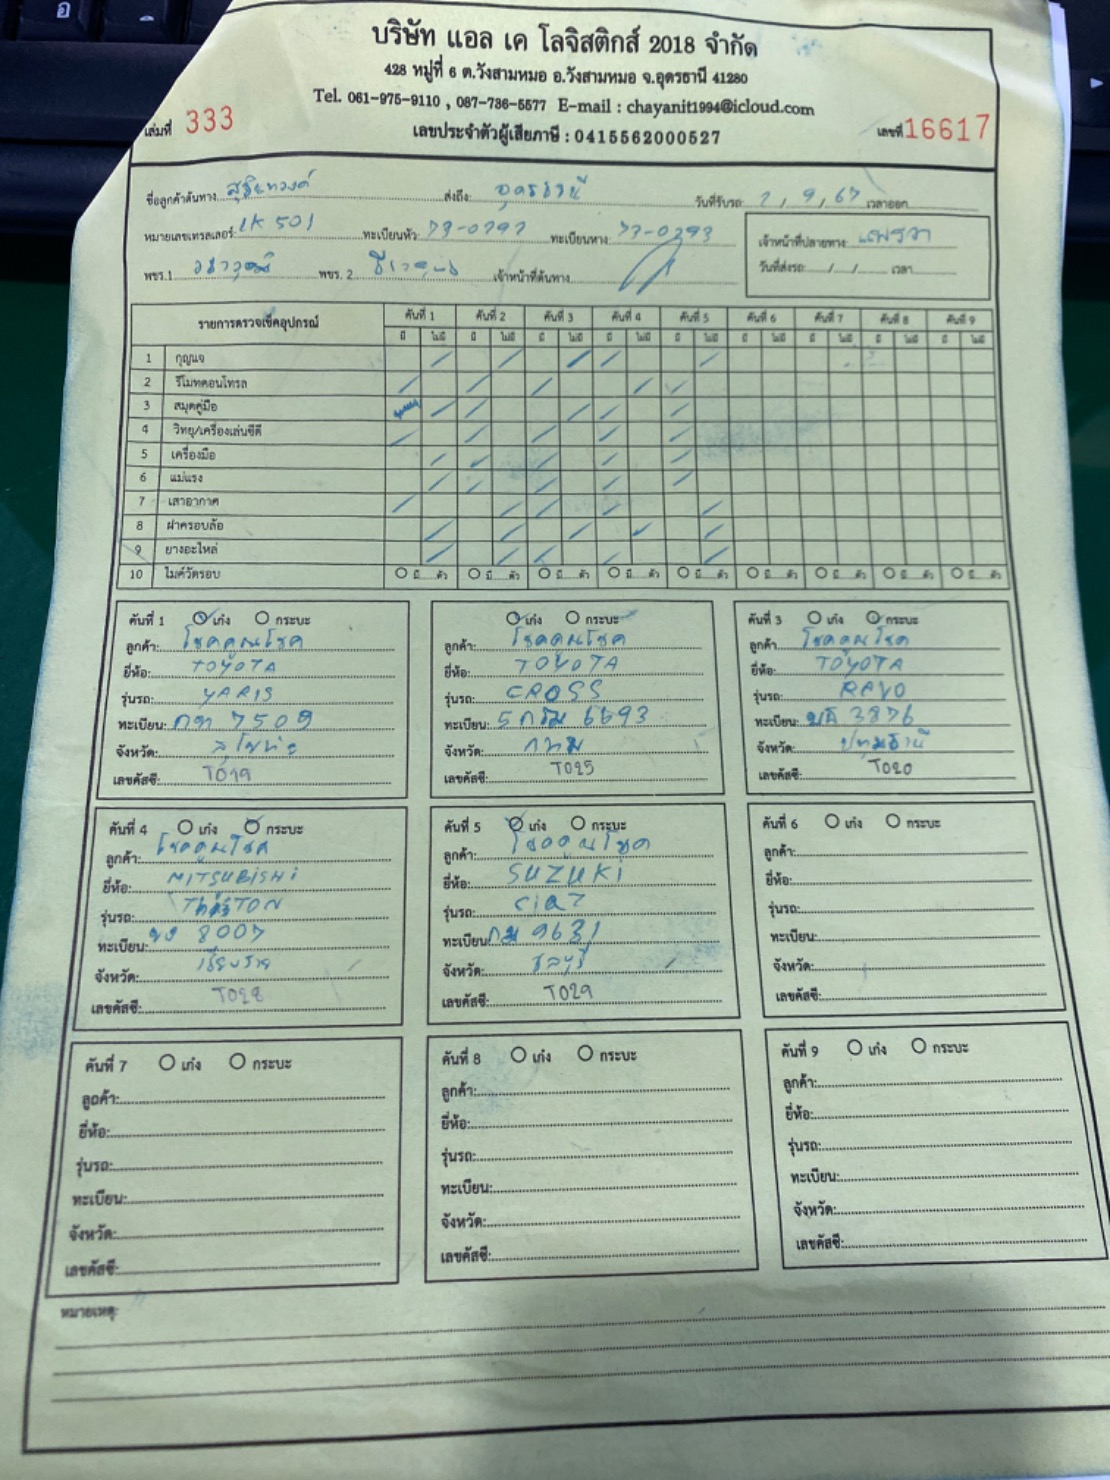 บริษัท แอล เค โลจิสติกส์ 2018 จำกัด
428 หมู่ที่ 6 ต.วังสามหมอ อ.วังสามหมอ จ.อุดรธานี 41280
Tel. 061-975-9110 , 087-736-5577 E-mail : chayanit1994@icloud.com
เล่มที่ 333 เลขประจำตัวผู้เสียภาษี : 0415562000527 เลขที่ 16617
ชื่อลูกค้าต้นทาง: สุวินทวงศ์ ส่งถึง: อุดรธานี วันที่รับรถ 7 / 9 / 67 เวลาออก
หมายเลขเทรลเลอร์: LK 501 ทะเบียนหัว: ทะเบียนหาง: 73-0293 เจ้าหน้าที่ปลายทาง: แพรวา
พขร.1 พขร. 2 เจ้าหน้าที่ต้นทาง วันที่ส่งรถ / / เวลา
รายการตรวจเช็คอุปกรณ์ คันที่ 1 คันที่ 2 คันที่ 3 คันที่ 4 คันที่ 5 คันที่ 6 คันที่ 7 คันที่ 8 คันที่ 9
มี ไม่มี มี ไม่มี มี ไม่มี มี ไม่มี มี ไม่มี มี ไม่มี มี ไม่มี มี ไม่มี มี ไม่มี
1 กุญแจ
2 รีโมทคอนโทรล
3 สมุดคู่มือ
4 วิทยุ/เครื่องเล่นซีดี
5 เครื่องมือ
6 แม่แรง
7 เสาอากาศ
8 ฝาครอบล้อ
9 ยางอะไหล่
10 ไมค์วัดรอบ มี ตัว มี ตัว มี ตัว มี ตัว มี ตัว มี ตัว มี ตัว มี ตัว มี ตัว
คันที่ 1 เก๋ง กระบะ
ลูกค้า: โชคคูณโชค
ยี่ห้อ: TOYOTA
รุ่นรถ: YARIS
ทะเบียน: กท 7509
จังหวัด: สุโขทัย
เลขคัสซี: T019
เก๋ง กระบะ
ลูกค้า: โชคคูณโชค
ยี่ห้อ: TOYOTA
รุ่นรถ: CROSS
ทะเบียน: 5 กรม 6693
จังหวัด: กทม
เลขคัสซี: T025
คันที่ 3 เก๋ง กระบะ
ลูกค้า: โชคคูณโชค
ยี่ห้อ: TOYOTA
รุ่นรถ: REVO
ทะเบียน: 3876
จังหวัด: ปทุมธานี
เลขคัสซี: T020
คันที่ 4 เก๋ง กระบะ
ลูกค้า: โชคคูณโชค
ยี่ห้อ: MITSUBISHI
รุ่นรถ: TRITON
ทะเบียน: 8007
จังหวัด: เชียงราย
เลขคัสซี: T028
คันที่ 5 เก๋ง กระบะ
ลูกค้า: โชคคูณโชค
ยี่ห้อ: SUZUKI
รุ่นรถ: CIAZ
ทะเบียน: กม 9631
จังหวัด: ชลบุรี
เลขคัสซี: T029
คันที่ 6 เก๋ง กระบะ
ลูกค้า:
ยี่ห้อ:
รุ่นรถ:
ทะเบียน:
จังหวัด:
เลขคัสซี:
คันที่ 7 เก๋ง กระบะ
ลูกค้า:
ยี่ห้อ:
รุ่นรถ:
ทะเบียน:
จังหวัด:
เลขคัสซี:
คันที่ 8 เก๋ง กระบะ
ลูกค้า:
ยี่ห้อ:
รุ่นรถ:
ทะเบียน:
จังหวัด:
เลขคัสซี:
คันที่ 9 เก๋ง กระบะ
ลูกค้า:
ยี่ห้อ:
รุ่นรถ:
ทะเบียน:
จังหวัด:
เลขคัสซี:
หมายเหตุ: